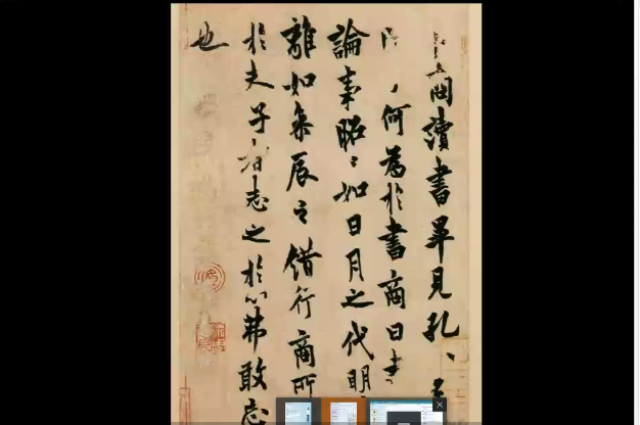 商讀書畢見孔、
何為於書商曰書
論事昭〻如日月之代明
離如參辰之錯行商所
於夫子者志之於心弗敢忘
也